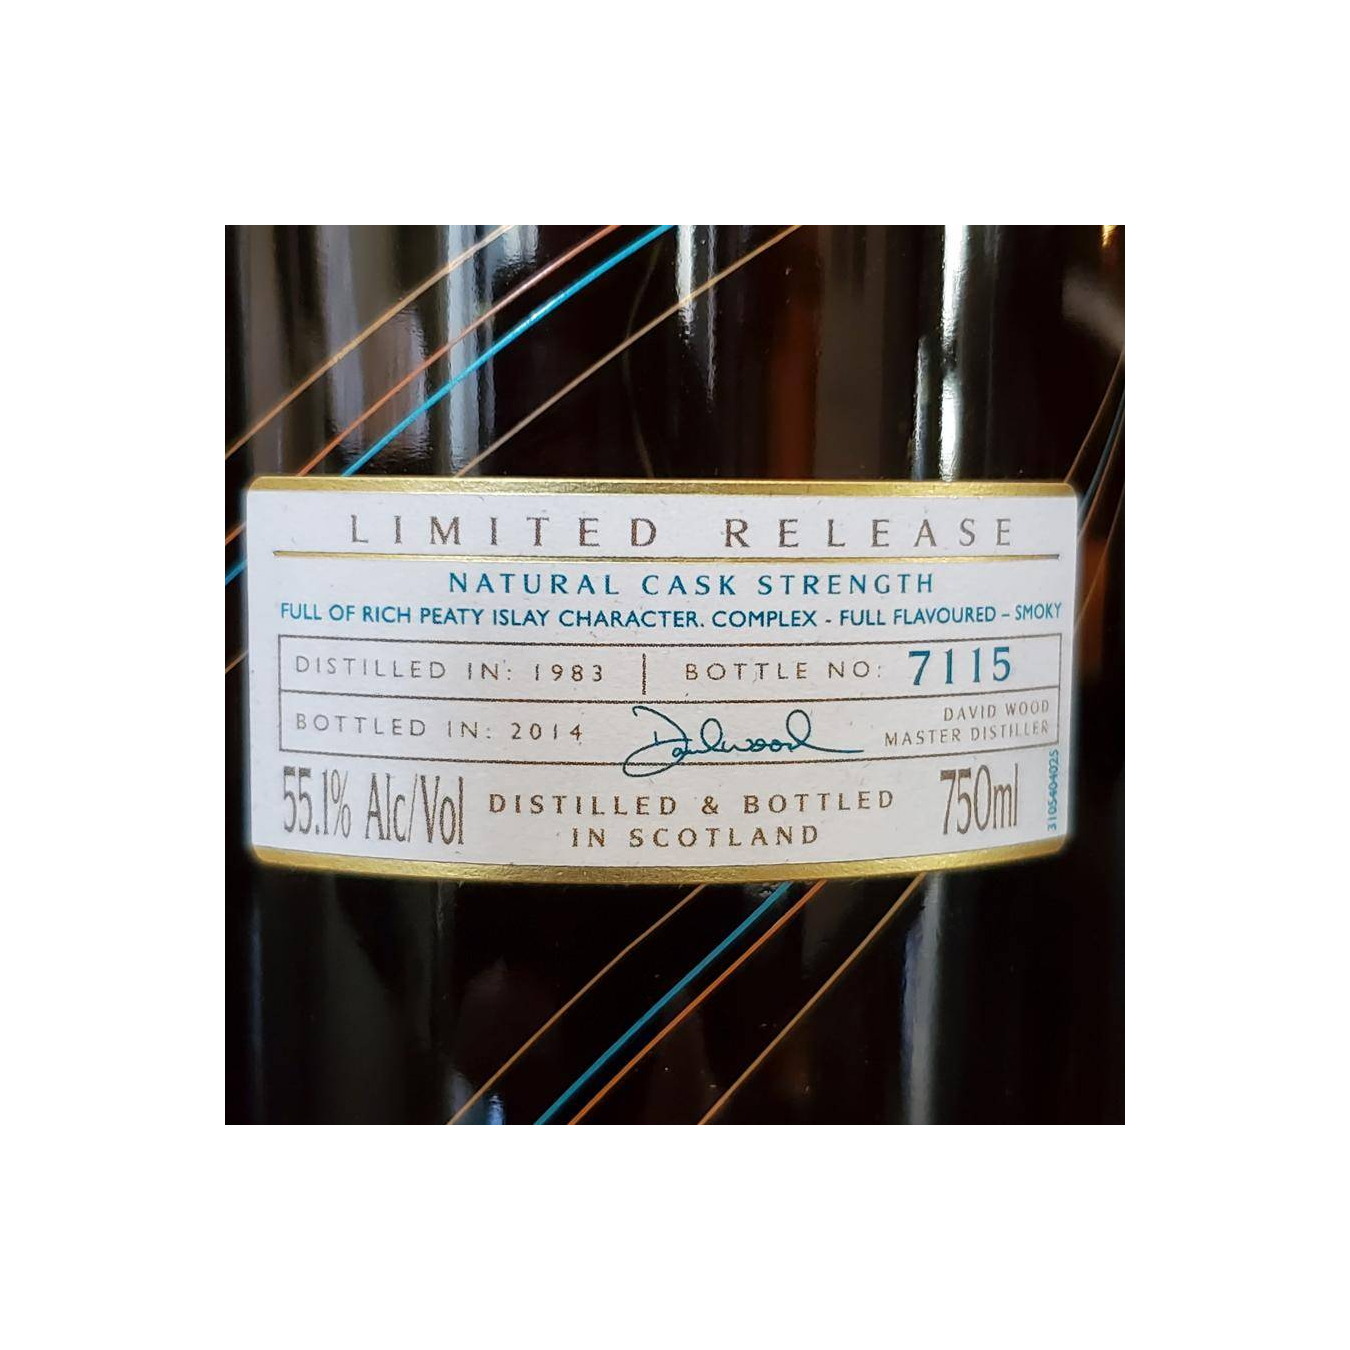 LIMITED RELEASE
NATURAL CASK STRENGTH
FULL OF RICH PEATY ISLAY CHARACTER. COMPLEX - FULL FLAVOURED – SMOKY
DISTILLED IN: 1983 | BOTTLE NO: 7115
BOTTLED IN: 2014
Davidwood
DAVID WOOD
MASTER DISTILLER
55.1% Alc/Vol
DISTILLED & BOTTLED
IN SCOTLAND
750ml
3105404025